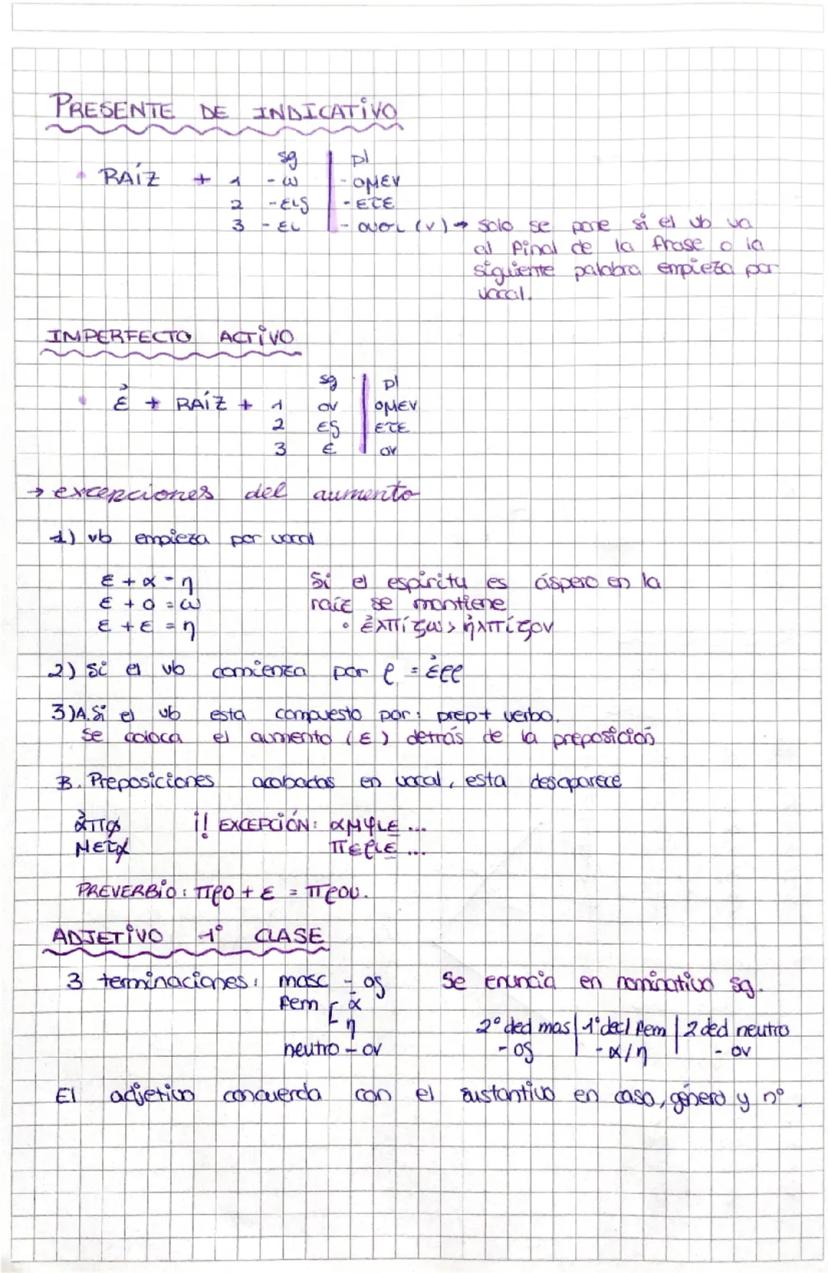 PRESENTE DE INDICATIVO
sg | pl
• RAÍZ + 1 -ω | -ομεν
2 -εις | -ετε
3 -ει | -ουσι (ν) → solo se pone si el vb va
al final de la frase o la
siguiente palabra empieza por
vocal.
IMPERFECTO ACTIVO
sg | pl
• ἐ + RAÍZ + 1 ον | ομεν
2 ες | ετε
3 ε | ον
→ excepciones del aumento
1) vb empieza por vocal
ε + α = η Si el espíritu es áspero en la
ε + ο = ω raíz se mantiene
ε + ε = η • ἐλπίζω > ἠλπίζον
2) Si el vb comienza por ρ = ἐρρ
3)A. Si el vb esta compuesto por: prep + verbo.
Se coloca el aumento (ε) detrás de la preposición
B. Preposiciones acabadas en vocal, esta desaparece
ἀπο ¡! EXCEPCIÓN: αμφιε ...
μετα περιε ...
PREVERBIO: προ + ε = πρου.
ADJETIVO 1º CLASE
3 terminaciones: masc - ος Se enuncia en nominativo sg.
fem [ α
η 2º decl mas | 1º decl fem | 2 decl neutro
neutro - ον -ος | -α/η | - ον
El adjetivo concuerda con el sustantivo en caso, género y nº.